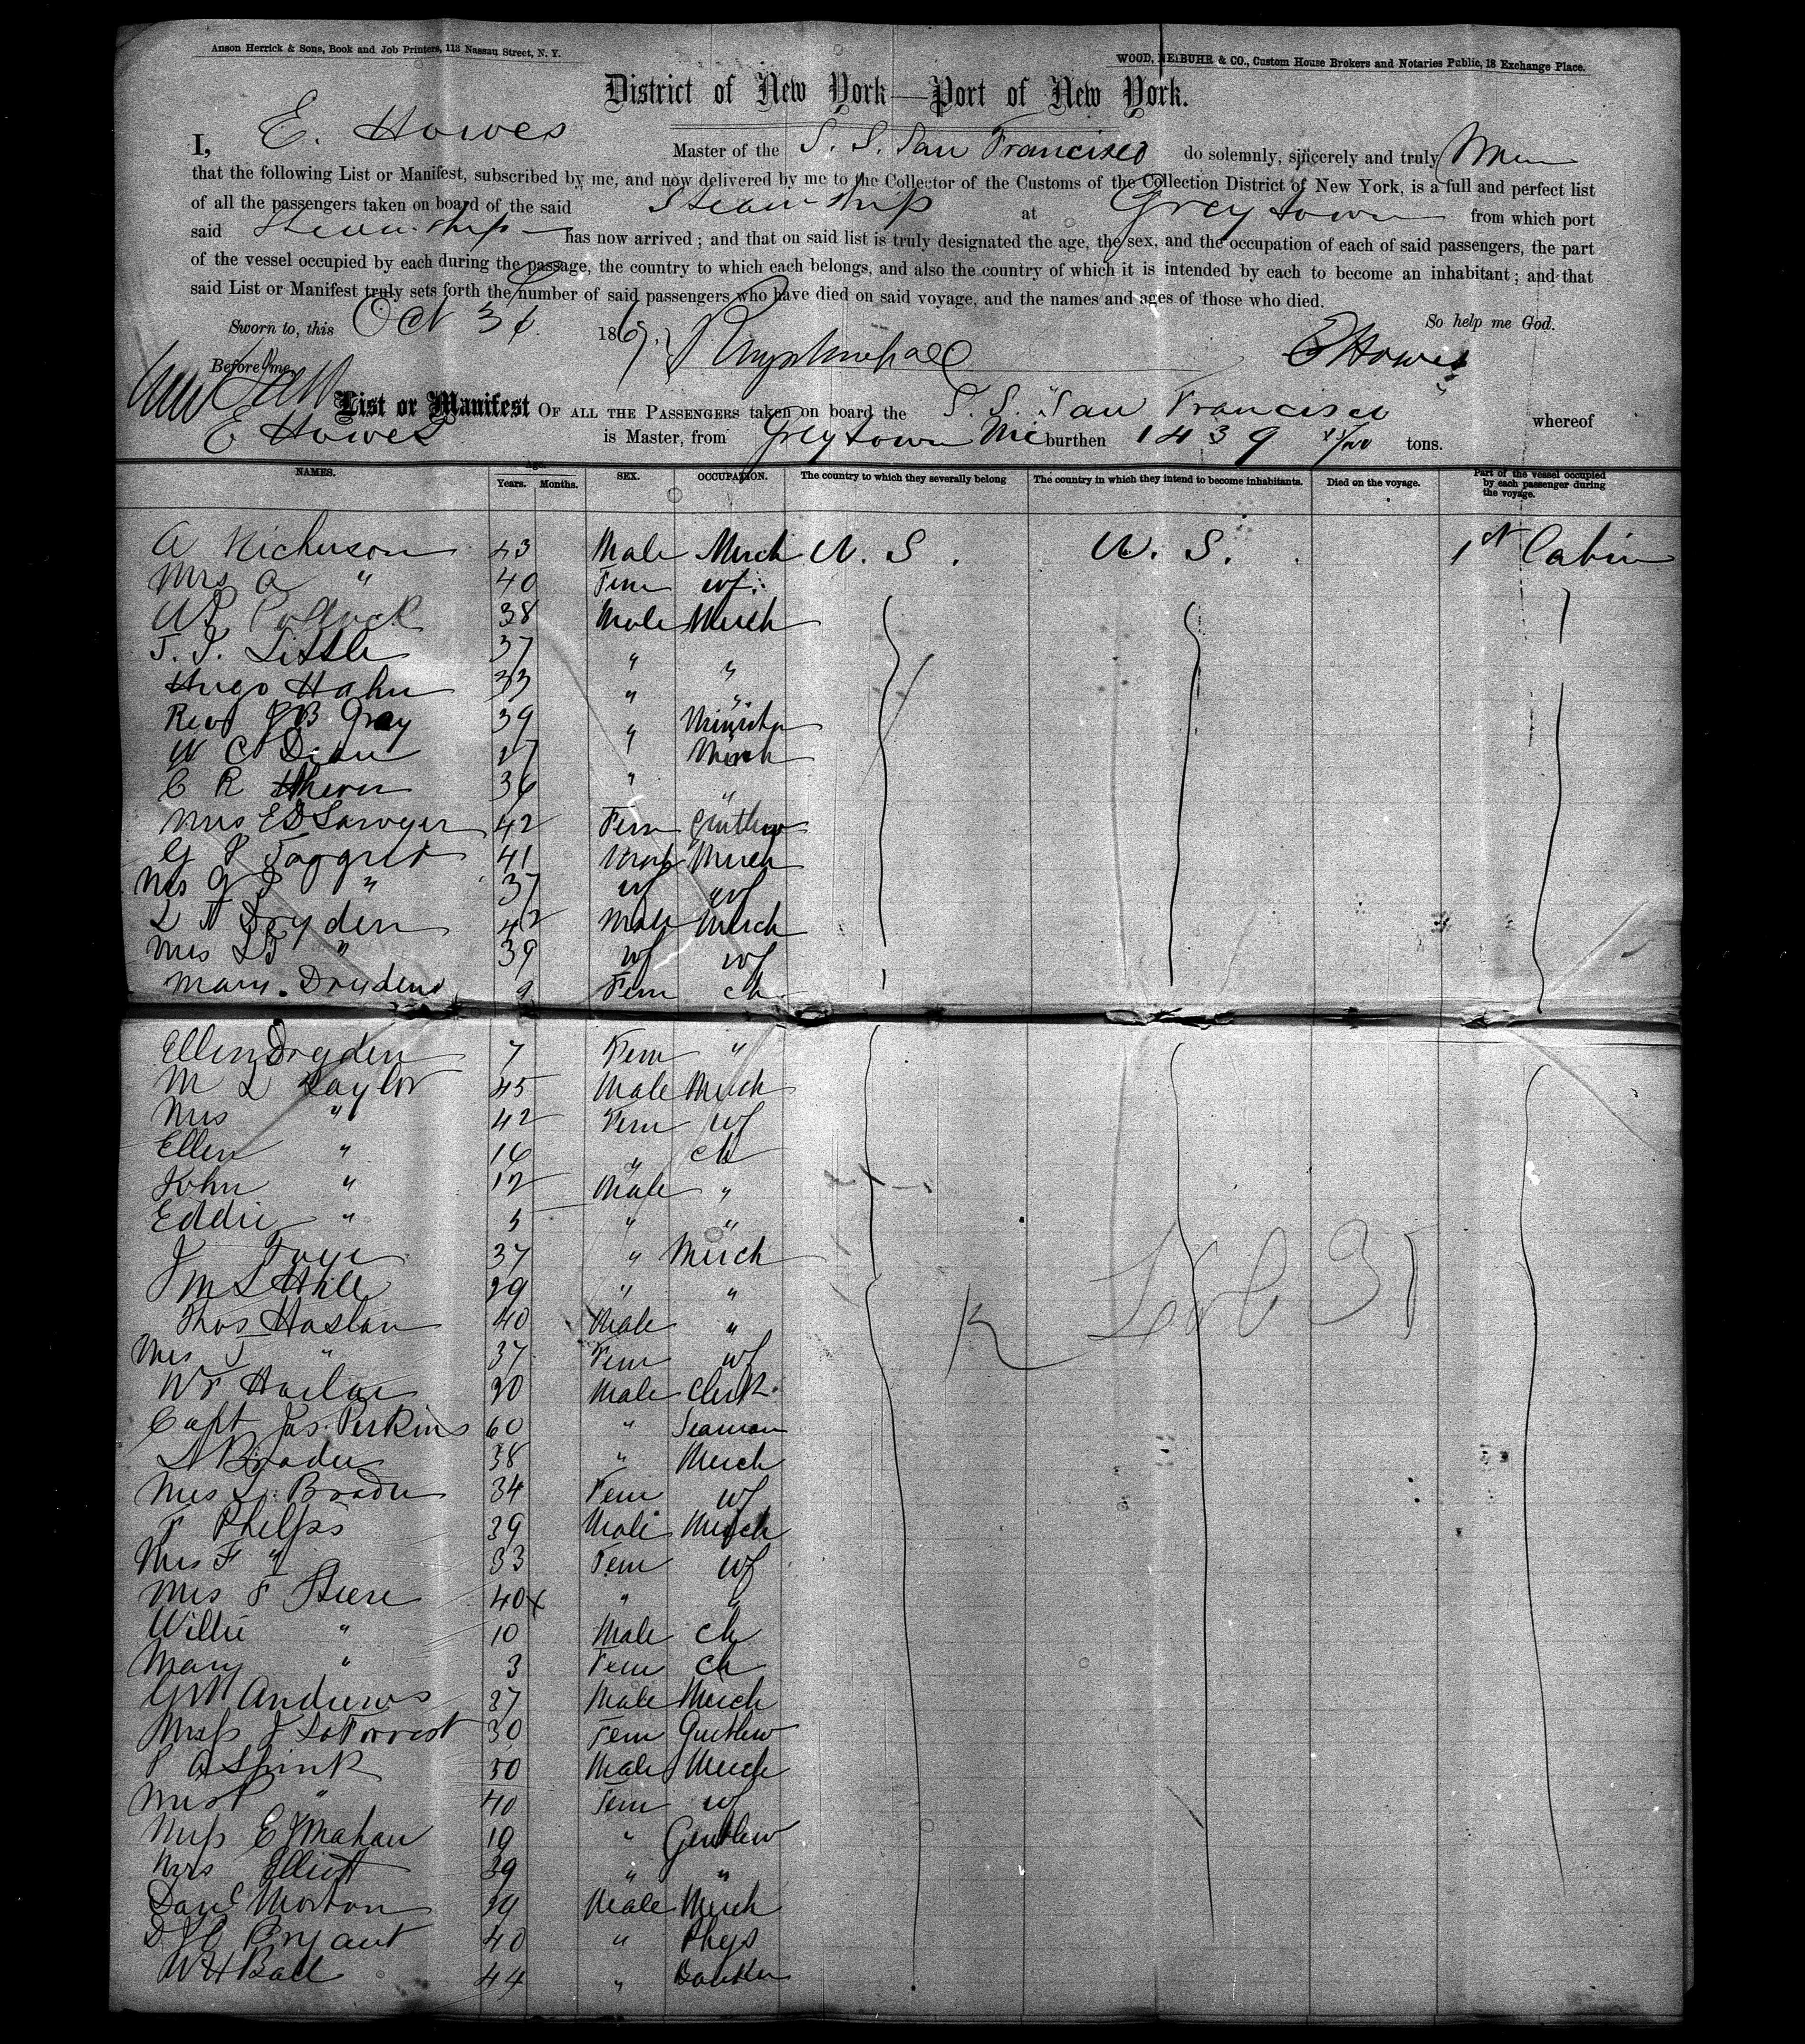 Anson Herrick & Sons, Book and Job Printers, 113 Nassau Street, N. Y.
WOOD, NEIBUHR & CO., Custom House Brokers and Notaries Public, 18 Exchange Place.
District of New York—Port of New York.
I, E. Howes Master of the S. S. San Francisco do solemnly, sincerely and truly
that the following List or Manifest, subscribed by me, and now delivered by me to the Collector of the Customs of the Collection District of New York, is a full and perfect list
of all the passengers taken on board of the said Steam Ship at Greytown from which port
said Steam-ship has now arrived; and that on said list is truly designated the age, the sex, and the occupation of each of said passengers, the part
of the vessel occupied by each during the passage, the country to which each belongs, and also the country of which it is intended by each to become an inhabitant; and that
said List or Manifest truly sets forth the number of said passengers who have died on said voyage, and the names and ages of those who died.
So help me God.
Sworn to, this Oct 186
E Howes
Before me,
List or Manifest OF ALL THE PASSENGERS taken on board the S. S. "San Francisco" whereof
E Howes is Master, from Greytown Nic burthen 1439 tons.
NAMES. Age. Years. Months. SEX. OCCUPATION. The country to which they severally belong The country in which they intend to become inhabitants. Died on the voyage. Part of the vessel occupied by each passenger during the voyage.
A Nickerson 43 Male Merch U. S. U. S. 1st Cabin
Mrs A " 40 Fem wf
Pollock 38 Male Merch
J. J. Little 37 " "
Hugo Hahn 33 " "
Revd J B Gray 39 " Minister
W C Dean 27 Merch
C R 36 " "
Mrs E D Sawyer 42 Fem Gentlew
G P Taggert 41 Male Merch
Mrs G P " 37 wf wf
L T Dryden 42 Male Merch
Mrs L T " 39 wf wf
Mary Dryden 9 Fem ch
Ellen Dryden 7 Fem "
M L Taylor 45 Male Merch
Mrs " 42 Fem wf
Ellen " 16 " ch
John " 12 Male "
Eddie " 5 " "
J 37 " Merch
J M L Hill 29 " "
Thos Haslan 40 Male "
Mrs T " 37 Fem wf
Wm 20 Male Clerk
Capt Jas. Perkins 60 " Seaman
L Brader 38 " Merch
Mrs L. Brader 34 Fem wf
F Phelps 39 Male Merch
Mrs F " 33 Fem wf
Mrs F Steere 40 x " "
Willie " 10 Male ch
Mary " 3 Fem ch
G W Andrews 27 Male Merch
Miss J LaForrest 30 Fem Gentlew
P A Spink 50 Male Merch
Mrs P " 40 Fem wf
Miss E J Mahan 19 " Gentlew
Mrs Elliott 39 " "
Danl Morton 39 Male Merch
D J C Bryant 40 " Phys
W H Ball 44 " Banker